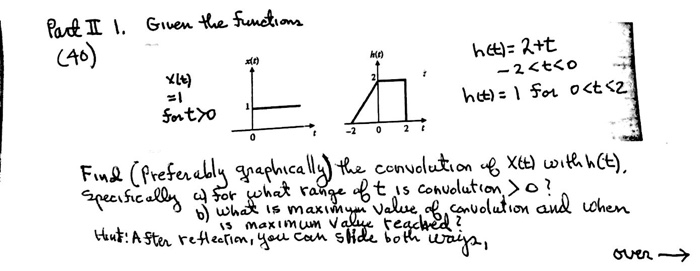 Part II 1. Given the functions
(40)
x(t)
=1
for t>0
x(t)
1
0
t
h(t)
2
-2 0 2 t
t
h(t) = 2+t
-2<t<0
h(t) = 1 for 0<t<2
Find (Preferably graphically) the convolution of x(t) with h(t),
specifically a) for what range of t is convolution > 0?
b) what is maximum value of convolution and when
is maximum value reached?
Hint: After reflection, you can slide both ways,
over →